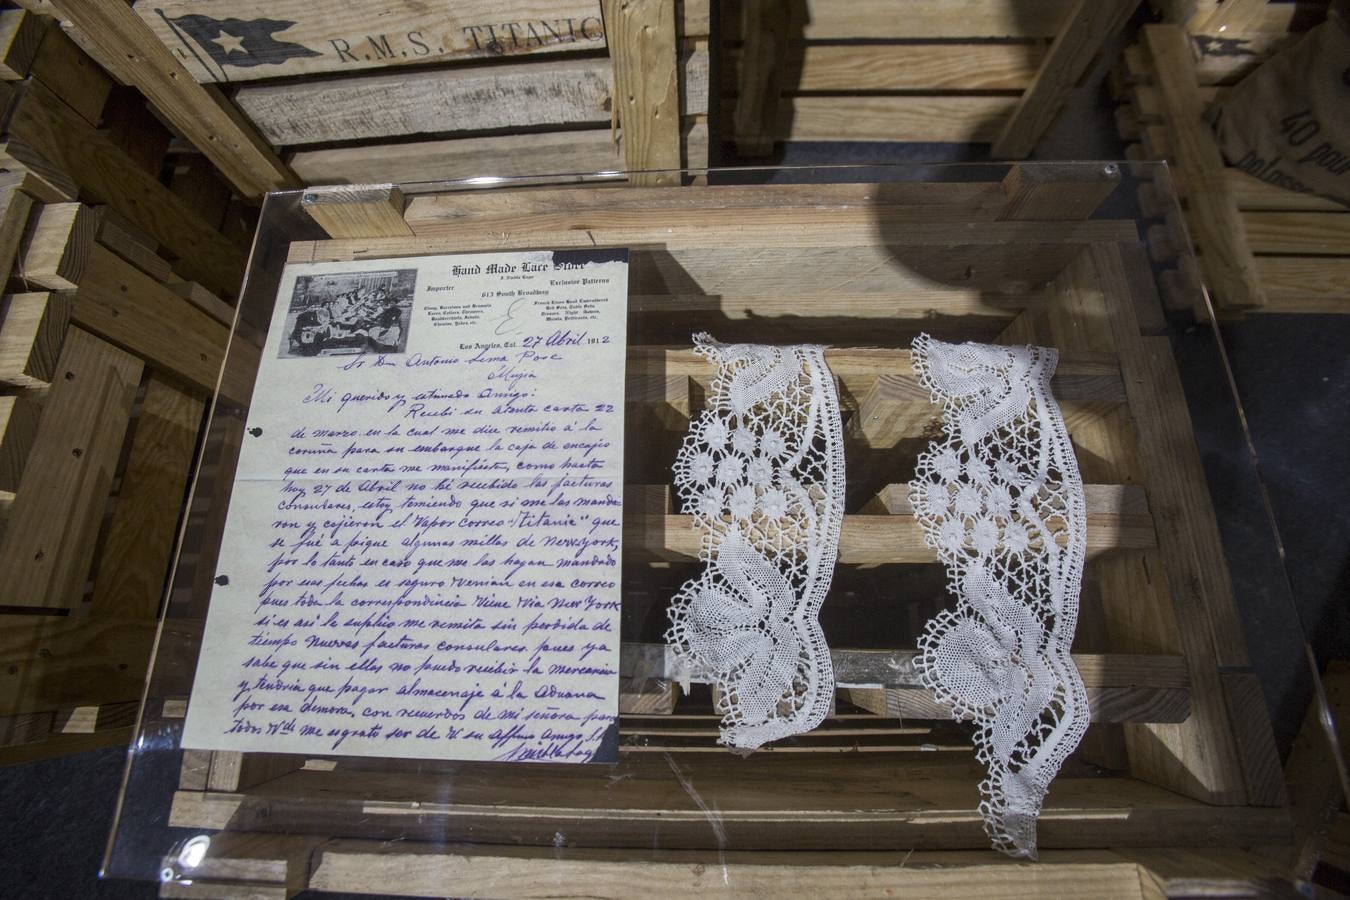 R.M.S. TITANIC
40 pou
Hand Made Lace Store
Importer
Exclusive Patterns
613 South Broadway
Los Angeles, Cal. 27 Abril 1912
Sr Dn Antonio Lema Pose
Mugia
Mi querido y estimado Amigo:
Recibi su atenta carta 22
de marzo en la cual me dice remitio á la
coruña para su embarque la caja de encajes
que en su carta me manifiesta, como hasta
hoy 27 de Abril no hé recibido las facturas
consulares, estoy temiendo que si me las manda-
ron y cojieron el Vapor Correo "Titanic" que
se fué a pique algunas millas de New York,
por lo tanto en caso que me las hayan mandado
por esas fechas es seguro venian en ese correo
pues toda la correspondincia viene via New York
si es asi le suplico me remita sin perdida de
tiempo nuevas facturas consulares. pues ya
sabe que sin ellas no puedo recibir la mercancia
y tendria que pagar almacenaje á la Aduana
por esa demora, con recuerdos de mi señora para
todos Vds me es grato ser de V su Affmo Amigo,